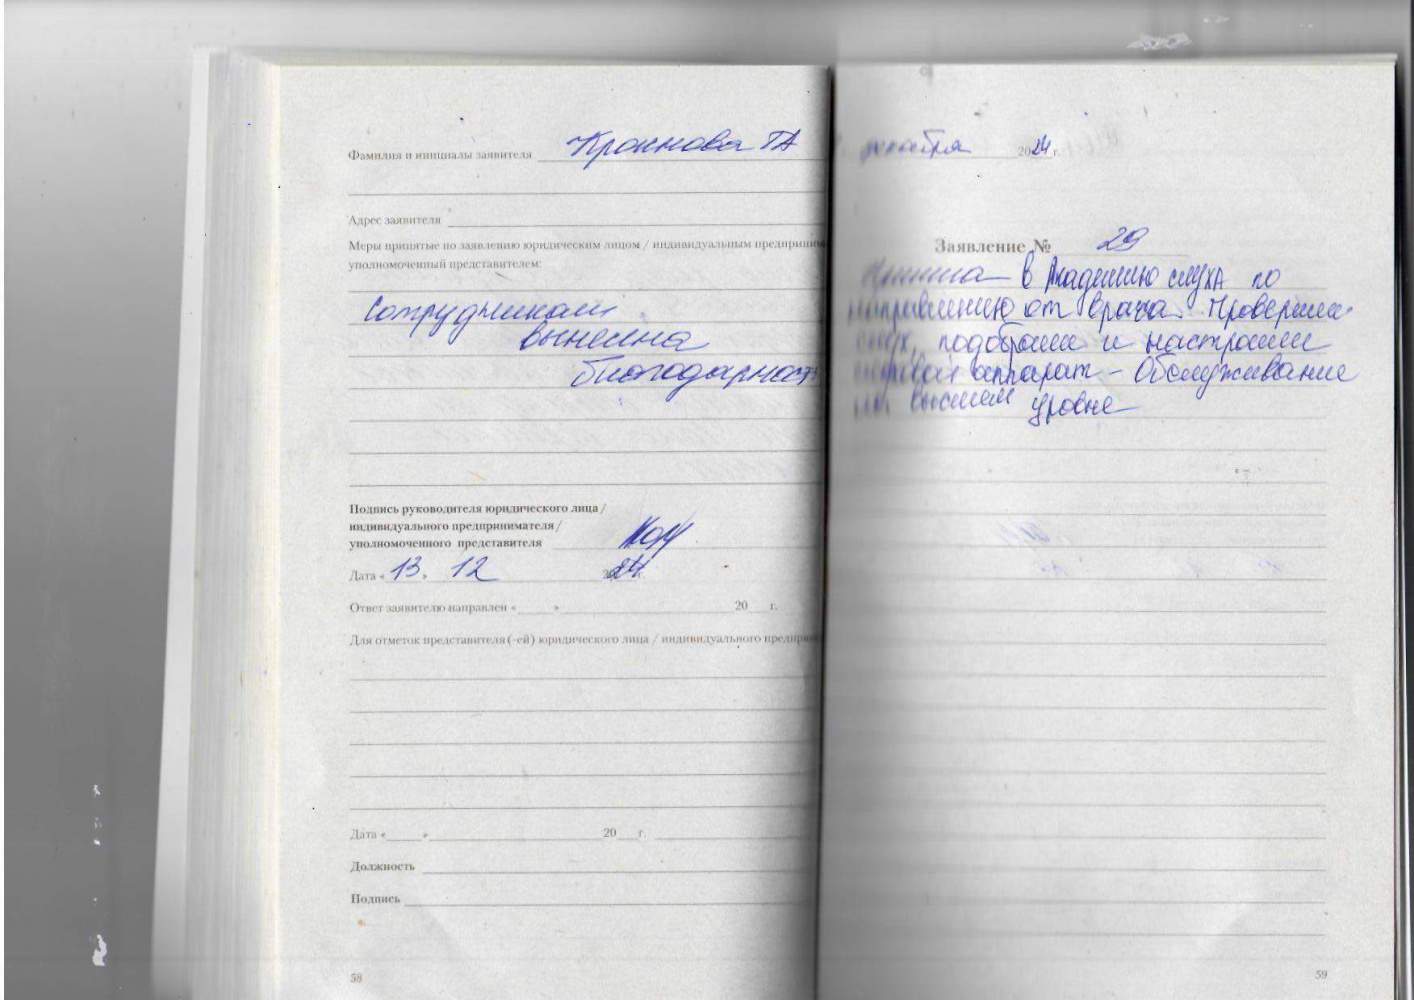 Фамилия и инициалы заявителя
ТА
Адрес заявителя
Меры принятые по заявлению юридическим лицом / индивидуальным
уполномоченный представителем:
Сотрудникам
вынесена
благодарность
Подпись руководителя юридического лица /
индивидуального предпринимателя /
уполномоченного представителя
Дата « 13 » 12 2024 г.
Ответ заявителю направлен « » 20 г.
Для отметок представителя (-ей) юридического лица / индивидуального
Дата « » 20 г.
Должность
Подпись
58
декабря 2024 г.
Заявление № 29
в Академию слуха по
направлению от врача. Проверили
слух, подобрали и настроили
аппарат - Обслуживание
на высшем уровне
59